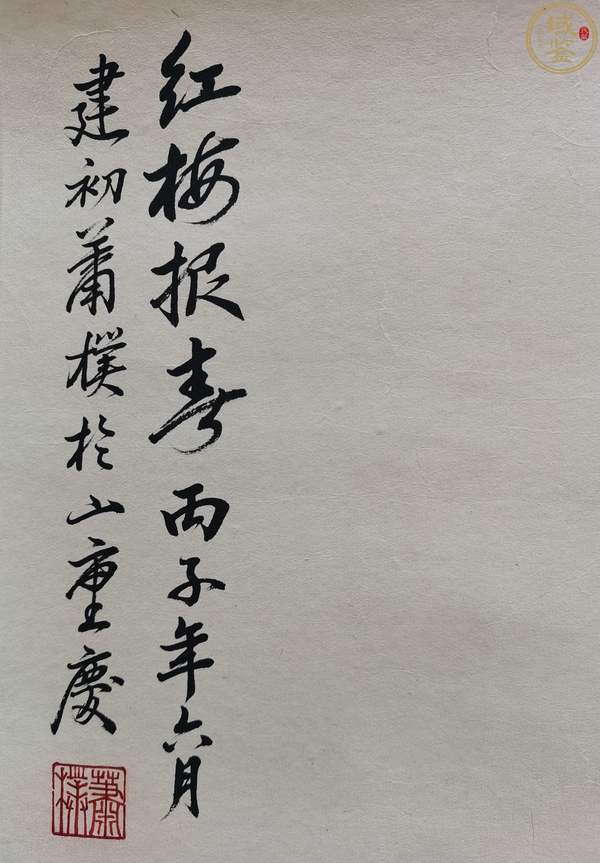 红梅报春 丙子年六月
建初蕭樸於山重慶
蕭樸
域鉴